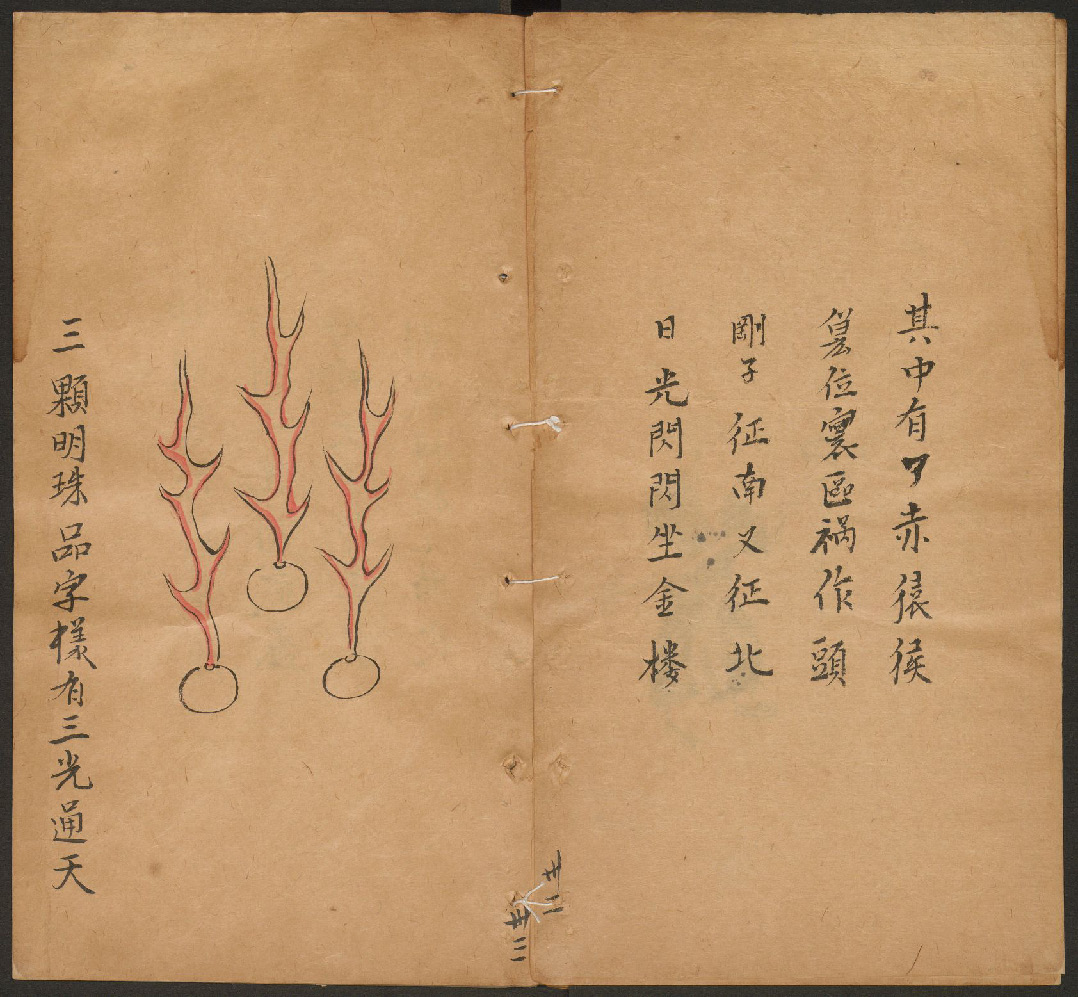 其中有赤猿猴
位寰區祸作頭
剛子征南又征北
日光閃閃坐金楼
卅二
卅三
三顆明珠品字樣有三光通天